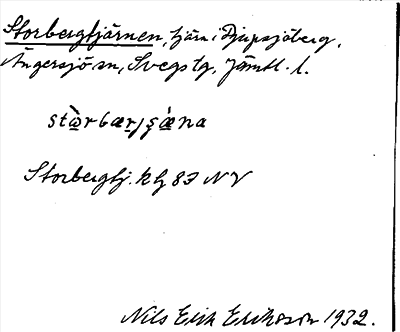 Storbergtjärnen, tjärn i Djupsjöberg,
Ängersjö sn, Svegs tg, Jämtl. l.
Storbergtj. kg 87 NV
Nils Erik Eriksson 1932.